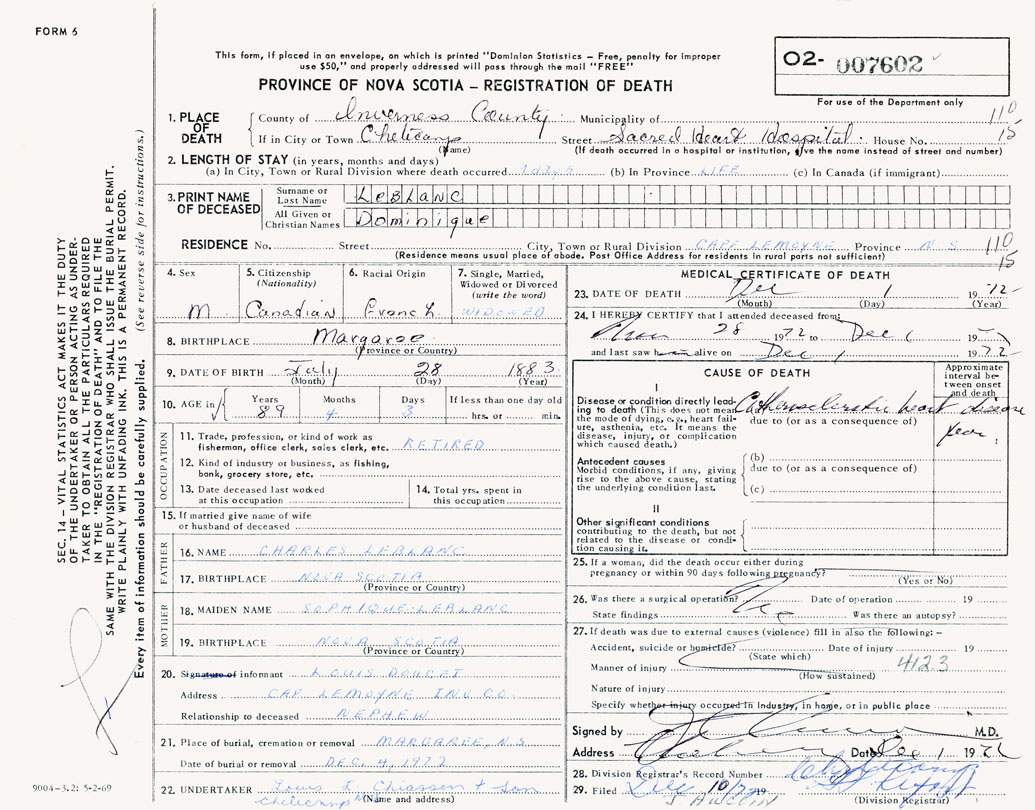 FORM 6
This form, if placed in an envelope, on which is printed "Dominion Statistics – Free, penalty for improper
use $50," and properly addressed will pass through the mail "FREE"
PROVINCE OF NOVA SCOTIA – REGISTRATION OF DEATH
02- 007602
For use of the Department only
SEC. 14 – VITAL STATISTICS ACT MAKES IT THE DUTY
OF THE UNDERTAKER OR PERSON ACTING AS UNDER-
TAKER TO OBTAIN ALL THE PARTICULARS REQUIRED
IN THE "REGISTRATION OF DEATH" AND TO FILE THE
SAME WITH THE DIVISION REGISTRAR WHO SHALL ISSUE THE BURIAL PERMIT.
WRITE PLAINLY WITH UNFADING INK. THIS IS A PERMANENT RECORD.
Every item of information should be carefully supplied. (See reverse side for instructions.)
1. PLACE OF DEATH County of Inverness County Municipality of 110
If in City or Town Cheticamp Street Sacred Heart Hospital House No. 15
(Name) (If death occurred in a hospital or institution, give the name instead of street and number)
2. LENGTH OF STAY (in years, months and days)
(a) In City, Town or Rural Division where death occurred days (b) In Province LIFE (c) In Canada (if immigrant)
3. PRINT NAME OF DECEASED Surname or Last Name LeBlanc
All Given or Christian Names Dominique
RESIDENCE No. Street City, Town or Rural Division CAP LEMOYNE Province N.S 110
(Residence means usual place of abode. Post Office Address for residents in rural parts not sufficient) 15
4. Sex M
5. Citizenship (Nationality) Canadian
6. Racial Origin French
7. Single, Married, Widowed or Divorced (write the word) WIDOWED
8. BIRTHPLACE Margaree
(Province or Country)
9. DATE OF BIRTH July 28 1883
(Month) (Day) (Year)
10. AGE in Years 89 Months 4 Days 3 If less than one day old hrs. or min.
OCCUPATION
11. Trade, profession, or kind of work as
fisherman, office clerk, sales clerk, etc. RETIRED
12. Kind of industry or business, as fishing,
bank, grocery store, etc.
13. Date deceased last worked
at this occupation
14. Total yrs. spent in
this occupation
15. If married give name of wife
or husband of deceased
FATHER
16. NAME CHARLES LEBLANC
17. BIRTHPLACE NOVA SCOTIA
(Province or Country)
MOTHER
18. MAIDEN NAME SOPHIQUE LEBLANC
19. BIRTHPLACE NOVA SCOTIA
(Province or Country)
20. Signature of informant LOUIS DOUCET
Address CAP LEMOYNE INV CO.
Relationship to deceased NEPHEW
21. Place of burial, cremation or removal MARGAREE, N.S
Date of burial or removal DEC. 4, 1972
22. UNDERTAKER Louis L Chiasson + Son
Cheticamp NS (Name and address)
MEDICAL CERTIFICATE OF DEATH
23. DATE OF DEATH Dec 1 1972
(Month) (Day) (Year)
24. I HEREBY CERTIFY that I attended deceased from:
28 1972 to Dec 1 19
and last saw h alive on Dec 1 1972
CAUSE OF DEATH
Approximate interval between onset and death
I
Disease or condition directly lead-
ing to death (This does not mean
the mode of dying, e.g., heart fail-
ure, asthenia, etc. It means the
disease, injury, or complication
which caused death.)
Atherosclerotic heart disease
due to (or as a consequence of)
year
Antecedent causes
Morbid conditions, if any, giving
rise to the above cause, stating
the underlying condition last.
(b)
due to (or as a consequence of)
(c)
II
Other significant conditions
contributing to the death, but not
related to the disease or condi-
tion causing it.
25. If a woman, did the death occur either during
pregnancy or within 90 days following pregnancy?
(Yes or No)
26. Was there a surgical operation? Date of operation 19
State findings Was there an autopsy?
27. If death was due to external causes (violence) fill in also the following: –
Accident, suicide or homicide? Date of injury 19
(State which)
Manner of injury 4123
(How sustained)
Nature of injury
Specify whether injury occurred in Industry, in home, or in public place
Signed by M.D.
Address Date Dec 1 1972
28. Division Registrar's Record Number
29. Filed 10/72 19
(Division Registrar)
9004-3.2: 5-2-69